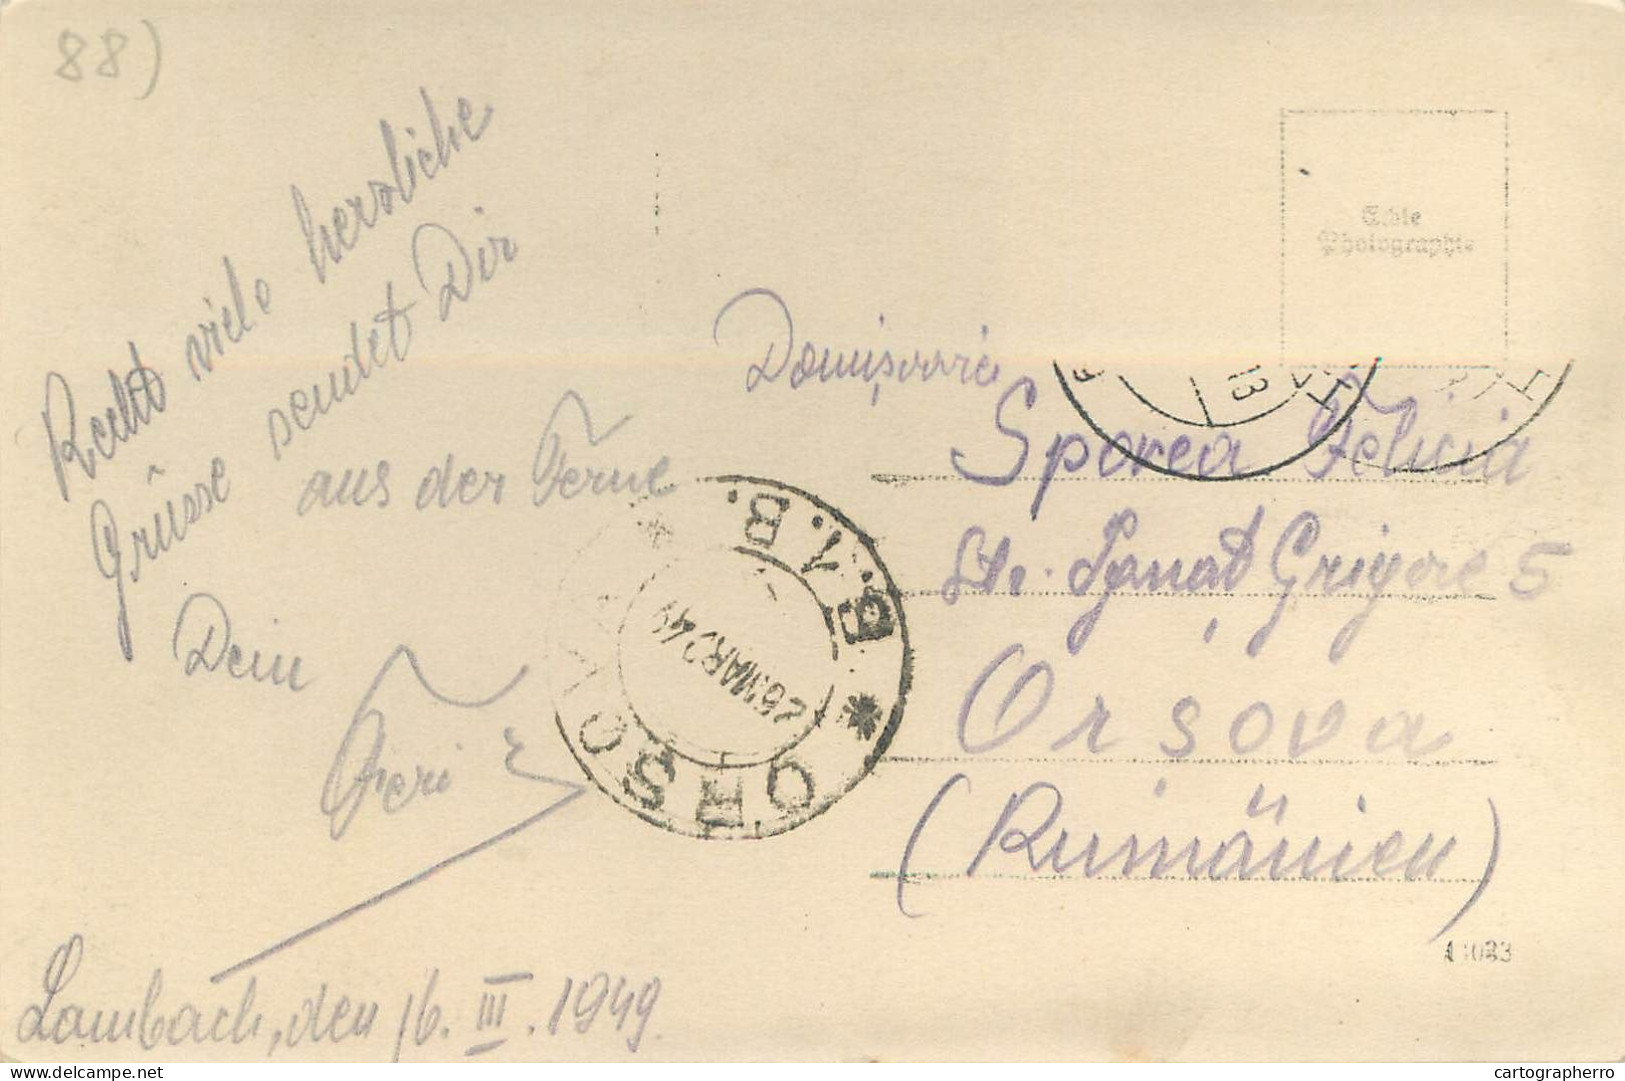 88)
Recht viele herzliche
Grüsse sendet Dir
aus der Ferne
Dein
Feri
Lambach, den 16. III. 1949.
Echte
Photographie
Domișoara
Sporea Felicia
Str. Ignat Grigore 5
Orșova
(Rumänien)
ORSOVA
26 MAR 949
1.B.
delcampe.net
cartographerro